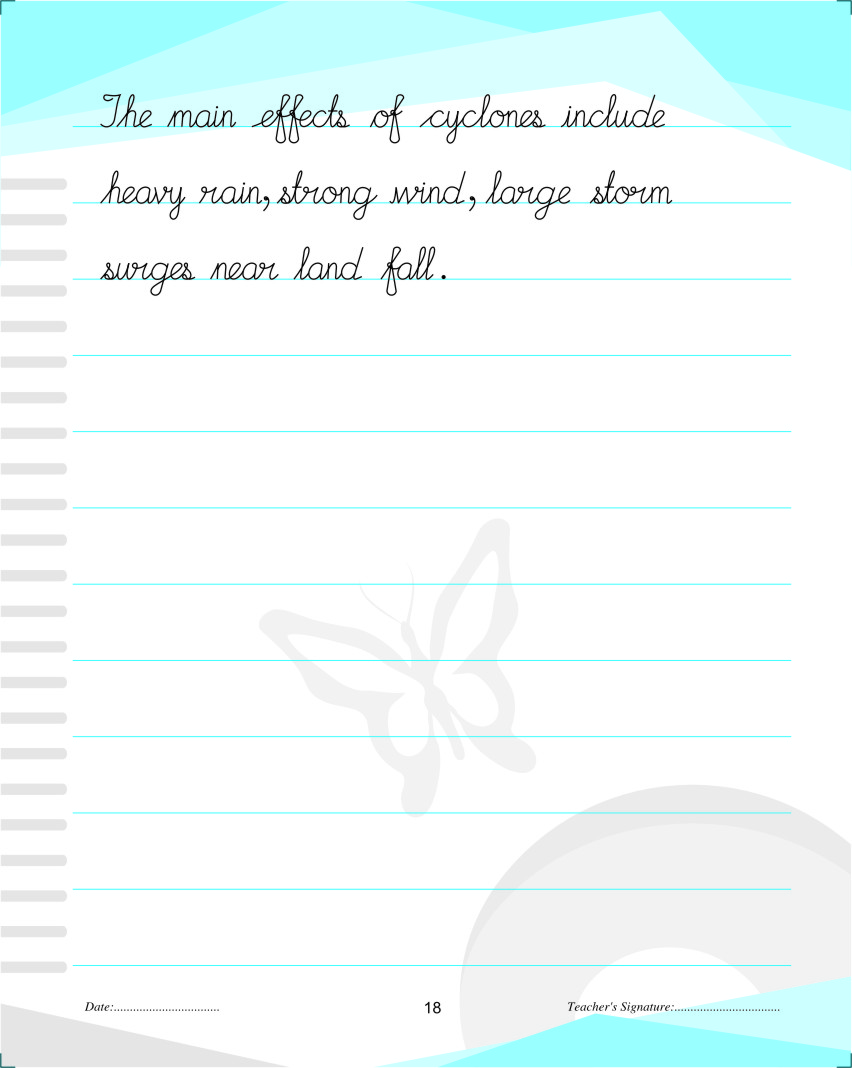 The main effects of cyclones include
heavy rain, strong wind, large storm
surges near land fall.
Date:.................................
18
Teacher's Signature:.................................